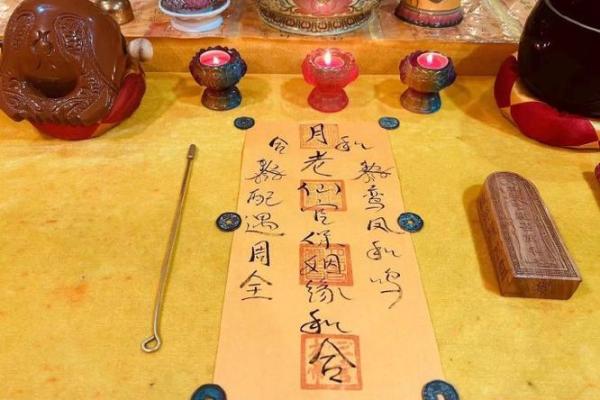 和
敕鸾凤和鸣
月老仙官保姻缘和合
合
敕配遇周全